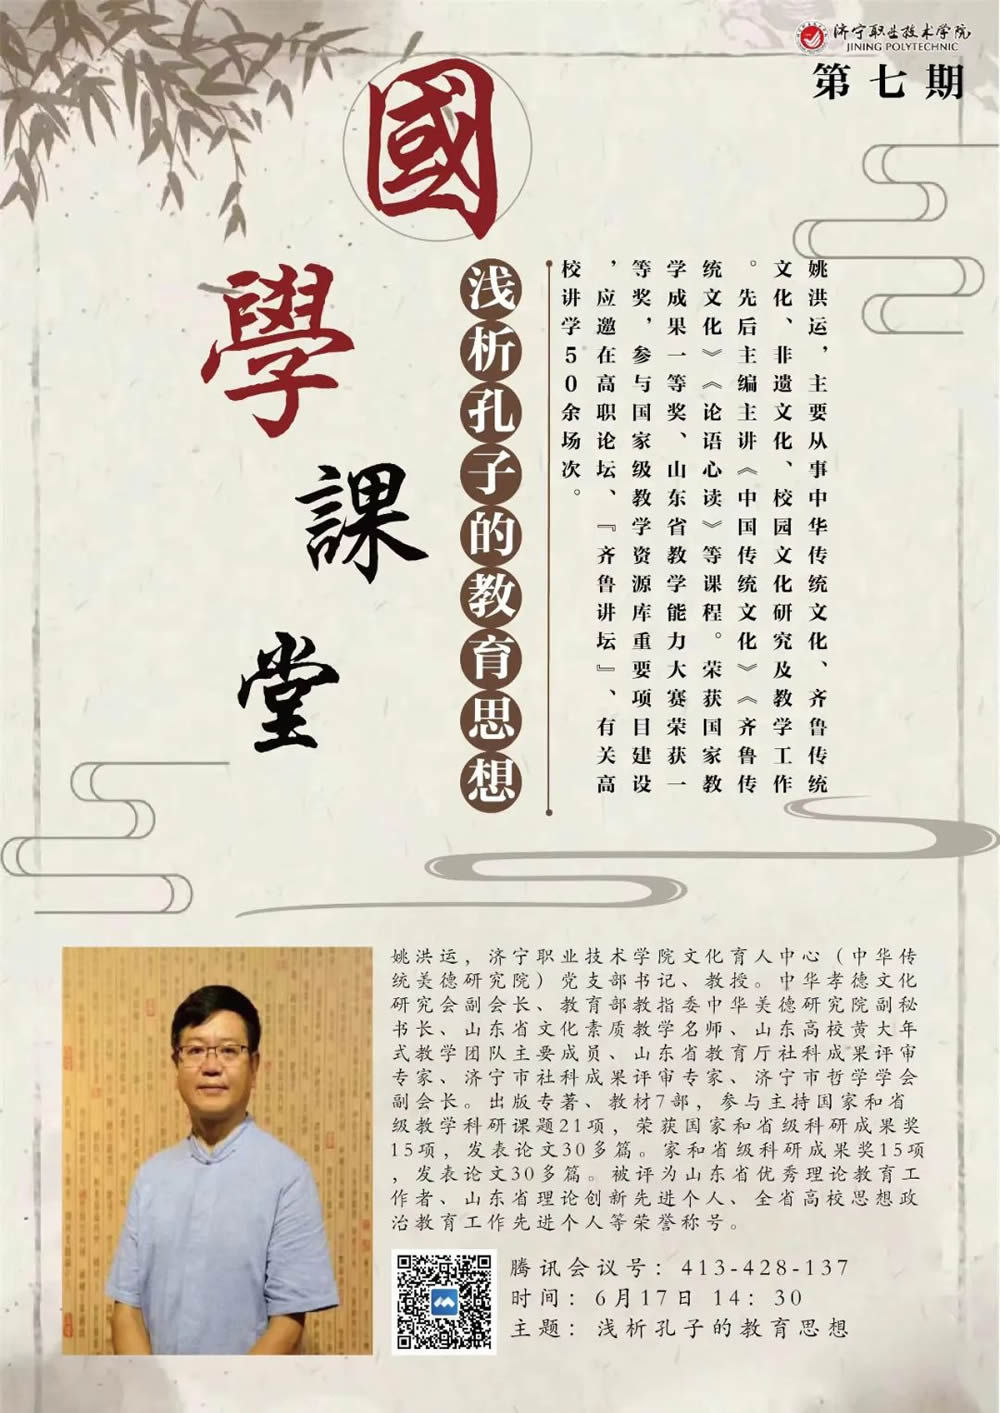 济宁职业技术学院
JINING POLYTECHNIC
第七期
國
學
課
堂
浅析孔子的教育思想
姚洪运，主要从事中华传统文化、齐鲁传统
文化、非遗文化、校园文化研究及教学工作
。先后主编主讲《中国传统文化》《齐鲁传
统文化》《论语心读》等课程。荣获国家教
学成果一等奖、山东省教学能力大赛荣获一
等奖，参与国家级教学资源库重要项目建设
，应邀在高职论坛、『齐鲁讲坛』、有关高
校讲学50余场次。
姚洪运，济宁职业技术学院文化育人中心（中华传
统美德研究院）党支部书记、教授。中华孝德文化
研究会副会长、教育部教指委中华美德研究院副秘
书长、山东省文化素质教学名师、山东高校黄大年
式教学团队主要成员、山东省教育厅社科成果评审
专家、济宁市社科成果评审专家、济宁市哲学学会
副会长。出版专著、教材7部，参与主持国家和省
级教学科研课题21项，荣获国家和省级科研成果奖
15项，发表论文30多篇。家和省级科研成果奖15项
，发表论文30多篇。被评为山东省优秀理论教育工
作者、山东省理论创新先进个人、全省高校思想政
治教育工作先进个人等荣誉称号。
腾讯会议号：413-428-137
时间：6月17日 14：30
主题：浅析孔子的教育思想